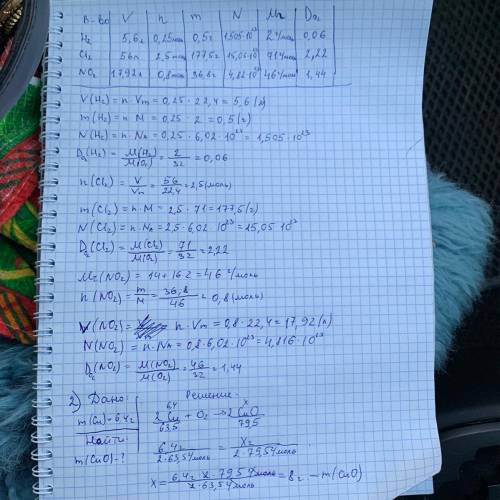 В-во V n m N Mr Do₂
H₂ 5,6л 0,25моль 0,5г 1,505·10²³ 2г/моль 0,06
Cl₂ 56л 2,5моль 177,5г 15,05·10²³ 71г/моль 2,22
NO₂ 17,92л 0,8моль 36,8г 4,82·10²³ 46г/моль 1,44
V(H₂) = n · Vm = 0,25 · 22,4 = 5,6 (л)
m(H₂) = n · M = 0,25 · 2 = 0,5 (г)
N(H₂) = n · Na = 0,25 · 6,02 · 10²³ = 1,505 · 10²³
Do₂(H₂) = M(H₂)/M(O₂) = 2/32 = 0,06
n(Cl₂) = V/Vm = 56/22,4 = 2,5 (моль)
m(Cl₂) = n · M = 2,5 · 71 = 177,5 (г)
N(Cl₂) = n · Na = 2,5 · 6,02 · 10²³ = 15,05 · 10²³
Do₂(Cl₂) = M(Cl₂)/M(O₂) = 71/32 = 2,22
Mr(NO₂) = 14 + 16·2 = 46 г/моль
n(NO₂) = m/M = 36,8/46 = 0,8 (моль)
V(NO₂) = n · Vm = 0,8 · 22,4 = 17,92 (л)
N(NO₂) = n · Na = 0,8 · 6,02 · 10²³ = 4,816 · 10²³
Do₂(NO₂) = M(NO₂)/M(O₂) = 46/32 = 1,44
2) Дано: Решение:
6,4 x
m(Cu) = 6,4г 2Cu + O₂ → 2CuO
63,5 79,5
Найти:
m(CuO) - ? 6,4г/2·63,5г/моль = xг/2·79,5г/моль
x = 6,4г · 2 · 79,5г/моль / 2·63,5г/моль = 8г – m(CuO)